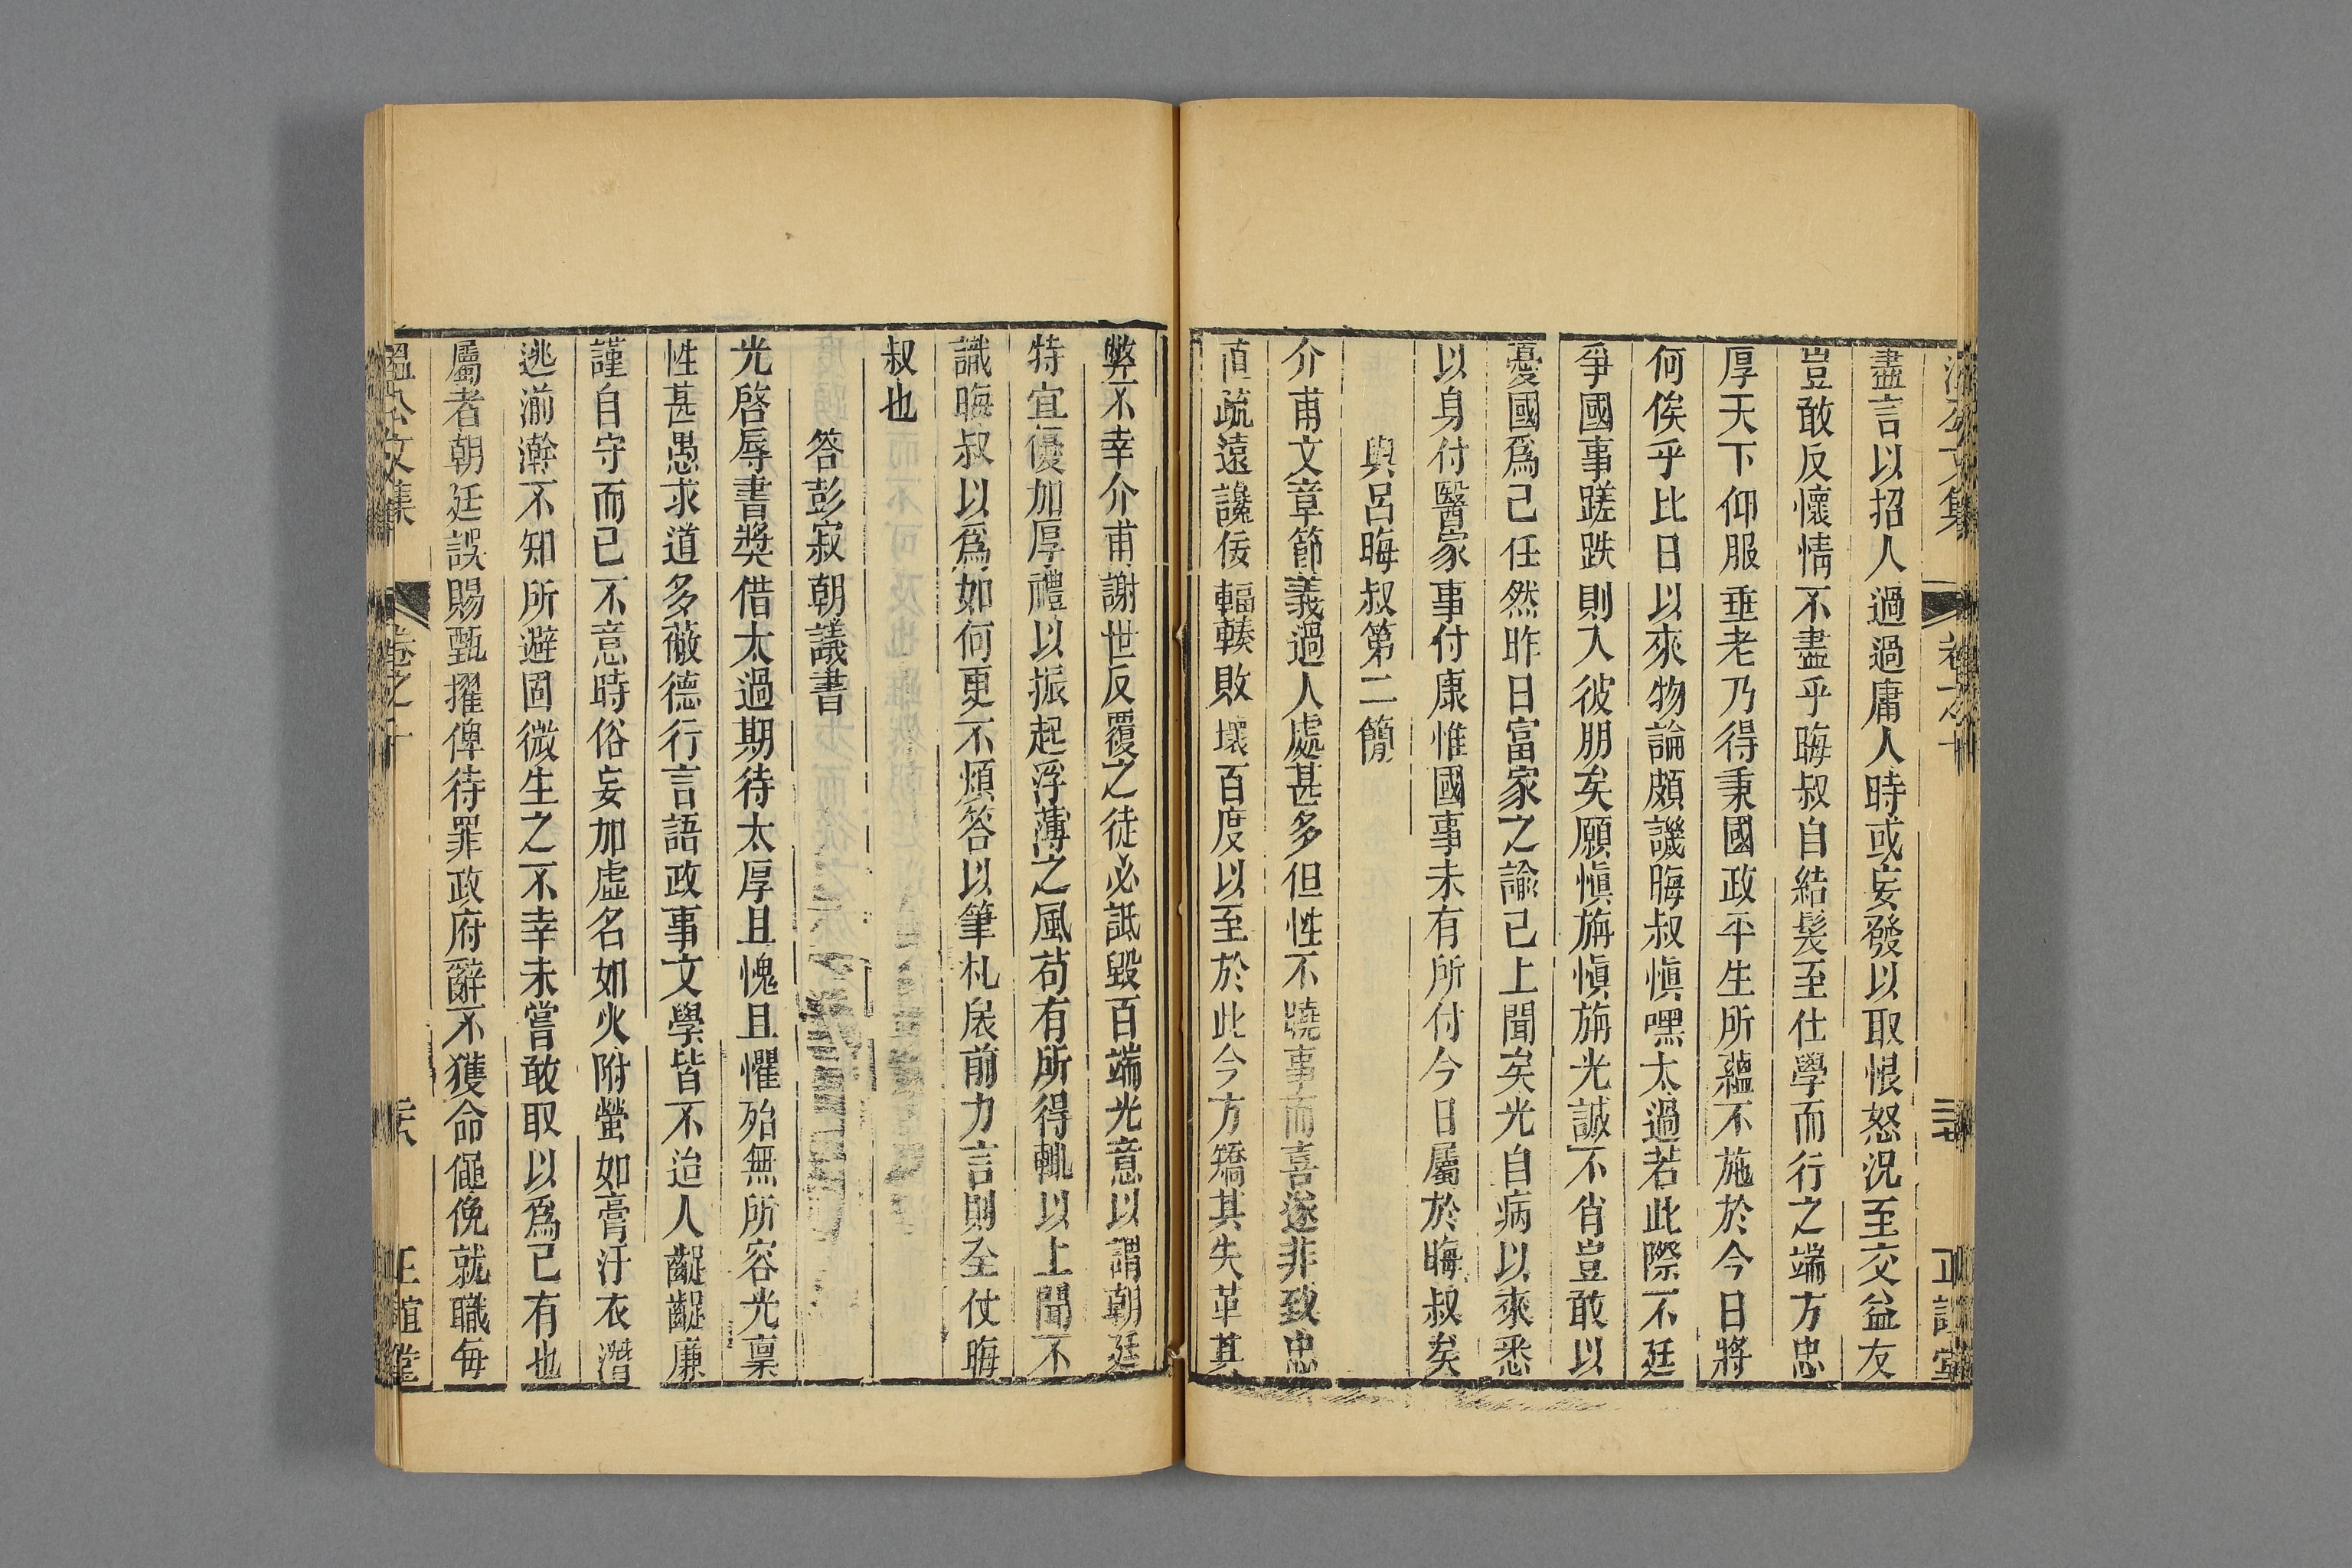 盡言以招人過過庸人時或妄發以取恨怒況至交益友
豈敢反懷情不盡乎晦叔自結髮至仕學而行之端方忠
厚天下仰服垂老乃得秉國政平生所蘊不施於今日將
何俟乎比日以來物論頗譏晦叔愼嘿太過若此際不廷
爭國事蹉跌則入彼朋矣願愼旃愼旃光誠不肖豈敢以
憂國爲己任然昨日富家之諭已上聞矣光自病以來悉
以身付醫家事付康惟國事未有所付今日屬於晦叔矣
與呂晦叔第二簡
介甫文章節義過人處甚多但性不曉事而喜遂非致忠
直疏遠讒佞輻輳敗壞百度以至於此今方矯其失革其
弊不幸介甫謝世反覆之徒必詆毀百端光意以謂朝廷
特宜優加厚禮以振起浮薄之風苟有所得輒以上聞不
識晦叔以爲如何更不煩答以筆札扆前力言則全仗晦
叔也
答彭寂朝議書
光啓辱書奬借太過期待太厚且愧且懼殆無所容光稟
性甚愚求道多蔽德行言語政事文學皆不迨人齪齪廉
謹自守而已不意時俗妄加虛名如火附螢如膏汙衣潛
逃湔澣不知所避固微生之不幸未嘗敢取以爲己有也
屬者朝廷誤賜甄擢俾待罪政府辭不獲命僶俛就職每
溫公文集 卷之十 正誼堂